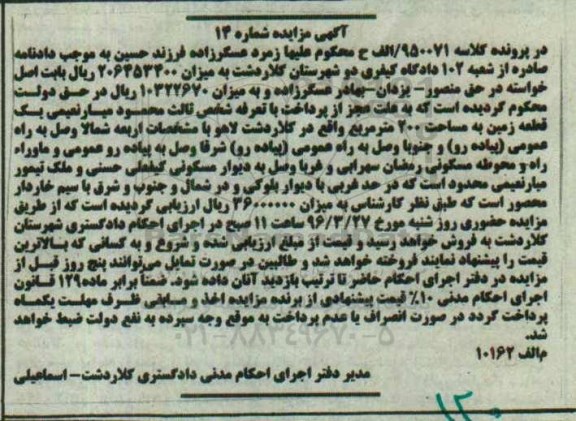 آگهی مزایده شماره ۱۴
در پرونده کلاسه ۹۵۰۰۷۱/الف ح محکوم علیها زمرد عسگرزاده فرزند حسین به موجب دادنامه
صادره از شعبه ۱۰۲ دادگاه کیفری دو شهرستان کلاردشت به میزان ۲۰۶۴۵۳۴۰۰ ریال بابت اصل
خواسته در حق منصور- یزدان-بهادر عسگرزاده و به میزان ۱۰۳۲۲۶۷۰ ریال در حق دولت
محکوم گردیده است که به علت عجز از پرداخت با تعرفه شخص ثالث محمود میارنعیمی یک
قطعه زمین به مساحت ۲۰۰ مترمربع واقع در کلاردشت لاهو با مشخصات اربعه شمالا وصل به راه
عمومی (پیاده رو) و جنوبا وصل به راه عمومی (پیاده رو) شرقا وصل به پیاده رو عمومی و ماوراء
راه-و محوطه مسکونی رمضان سهرابی و غربا وصل به دیوار مسکونی کیفعلی حسنی و ملک تیمور
میارنعیمی محدود است که در حد غربی با دیوار بلوکی و در شمال و جنوب و شرق با سیم خاردار
محصور است که طبق نظر کارشناسی به میزان ۳۶۰۰۰۰۰۰۰ ریال ارزیابی گردیده است که از طریق
مزایده حضوری روز شنبه مورخ ۹۶/۳/۲۷ ساعت ۱۱ صبح در اجرای احکام دادگستری شهرستان
کلاردشت به فروش خواهد رسید و قیمت از مبلغ ارزیابی شده و شروع و به کسانی که بالاترین
قیمت را پیشنهاد نمایند فروخته خواهد شد و طالبین در صورت تمایل می‌توانند پنج روز قبل از
مزایده در دفتر اجرای احکام حاضر تا ترتیب بازدید آنان داده شود. ضمناً برابر ماده۱۲۹ قانون
اجرای احکام مدنی ۱۰٪ قیمت پیشنهادی از برنده مزایده اخذ و مابقی ظرف مهلت یکماه
پرداخت گردد در صورت انصراف یا عدم پرداخت به موقع وجه سپرده به نفع دولت ضبط خواهد
شد.
۰۲۱-۸۸۳۴۹۶۷۰-۵
م/الف ۱۰۱۶۲
مدیر دفتر اجرای احکام مدنی دادگستری کلاردشت- اسماعیلی
۱۲۰